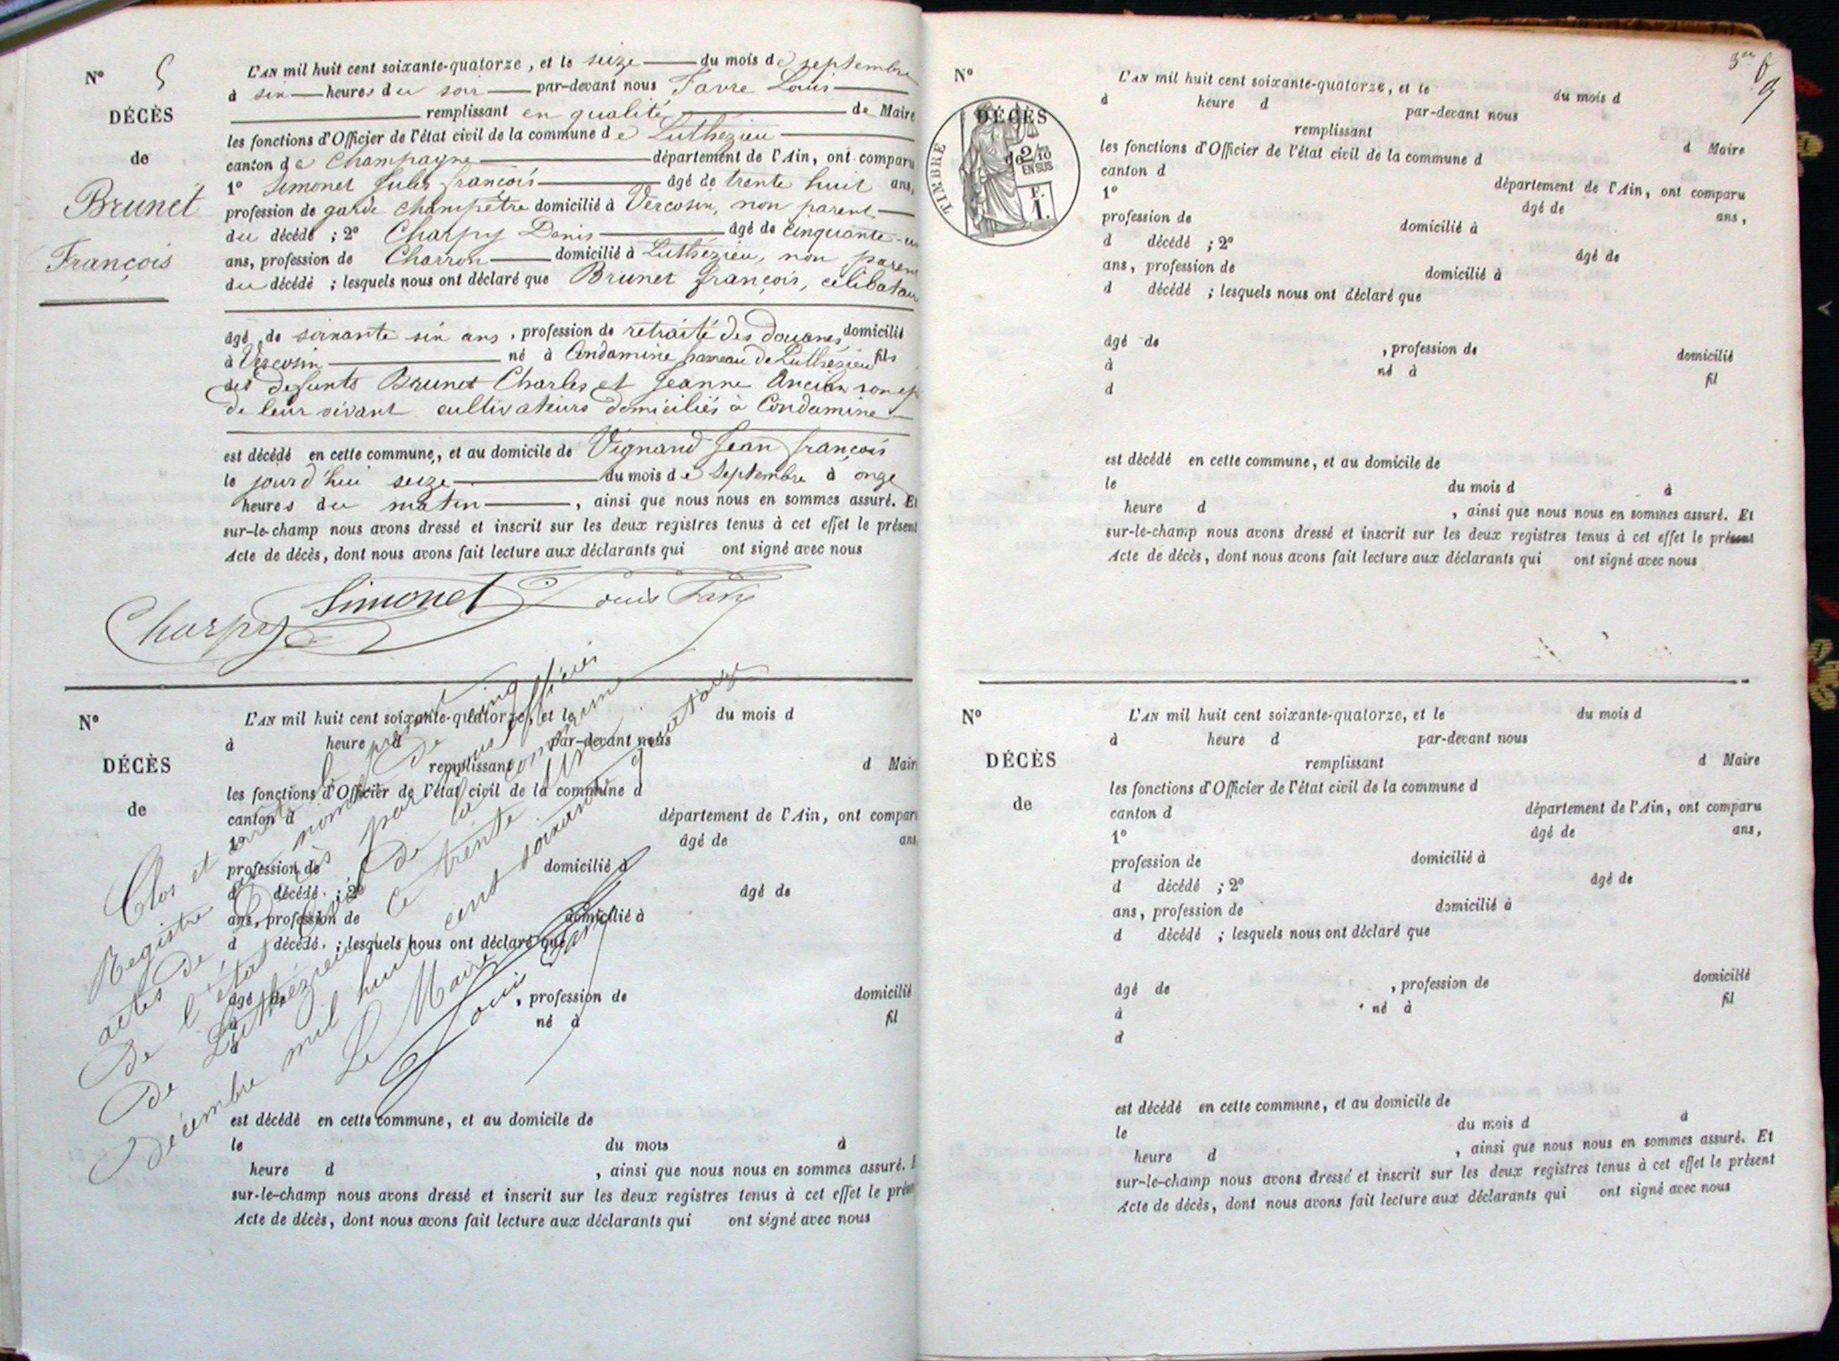 N° 5
DÉCÈS
de
Brunet
François
L'AN mil huit cent soixante-quatorze, et le seize du mois de septembre
à six heures du soir par-devant nous Favre Louis
remplissant en qualité de Maire
les fonctions d'Officier de l'état civil de la commune de Luthézieu
canton de Champagne département de l'Ain, ont comparu
1° Simonet Jules françois âgé de trente huit ans,
profession de garde champêtre domicilié à Vercosin, non parent
du décédé ; 2° Charpy Denis âgé de cinquante-un
ans, profession de Charron domicilié à Luthézieu, non parent
du décédé ; lesquels nous ont déclaré que Brunet françois, célibataire
âgé de soixante six ans, profession de retraité des douanes domicilié
à Vercosin né à Condamine hameau de Luthézieu fils
des defunts Brunet Charles et Jeanne Ancian
de leur vivant cultivateurs domiciliés à Condamine
est décédé en cette commune, et au domicile de Vignand Jean françois
le jourd'hui seize du mois de Septembre à onze
heures du matin, ainsi que nous nous en sommes assuré. Et
sur-le-champ nous avons dressé et inscrit sur les deux registres tenus à cet effet le présent
Acte de décès, dont nous avons fait lecture aux déclarants qui ont signé avec nous
Charpy Simonet Louis Favre
N°
DÉCÈS
de
L'AN mil huit cent soixante-quatorze, et le du mois d
à heure d par-devant nous
remplissant d Maire
les fonctions d'Officier de l'état civil de la commune d
canton d département de l'Ain, ont comparu
1° âgé de ans,
profession de domicilié à
d décédé ; 2° âgé de
ans, profession de domicilié à
d décédé ; lesquels nous ont déclaré que
âgé de , profession de domicilié
à né à fil
d
est décédé en cette commune, et au domicile de
le du mois à
heure d , ainsi que nous nous en sommes assuré. E
sur-le-champ nous avons dressé et inscrit sur les deux registres tenus à cet effet le présent
Acte de décès, dont nous avons fait lecture aux déclarants qui ont signé avec nous
Clos et arrêté le présent
Registre au nombre de cinq
actes de Décès par nous officier
de l'état civil de la commune
de Luthézieu ce trente un
Décembre mil huit cent soixante quatorze
Le Maire
Louis Favre
3me f
9
N°
DÉCÈS
de
TIMBRE
2/10
EN SUS
F.
1.
L'AN mil huit cent soixante-quatorze, et le du mois d
à heure d par-devant nous
remplissant d Maire
les fonctions d'Officier de l'état civil de la commune d
canton d département de l'Ain, ont comparu
1° âgé de ans,
profession de domicilié à
d décédé ; 2° âgé de
ans, profession de domicilié à
d décédé ; lesquels nous ont déclaré que
âgé de , profession de domicilié
à né à fil
d
est décédé en cette commune, et au domicile de
le du mois d à
heure d , ainsi que nous nous en sommes assuré. Et
sur-le-champ nous avons dressé et inscrit sur les deux registres tenus à cet effet le présent
Acte de décès, dont nous avons fait lecture aux déclarants qui ont signé avec nous
N°
DÉCÈS
de
L'AN mil huit cent soixante-quatorze, et le du mois d
à heure d par-devant nous
remplissant d Maire
les fonctions d'Officier de l'état civil de la commune d
canton d département de l'Ain, ont comparu
1° âgé de ans,
profession de domicilié à
d décédé ; 2° âgé de
ans, profession de domicilié à
d décédé ; lesquels nous ont déclaré que
âgé de , profession de domicilié
à né à fil
d
est décédé en cette commune, et au domicile de
le du mois d à
heure d , ainsi que nous nous en sommes assuré. Et
sur-le-champ nous avons dressé et inscrit sur les deux registres tenus à cet effet le présent
Acte de décès, dont nous avons fait lecture aux déclarants qui ont signé avec nous